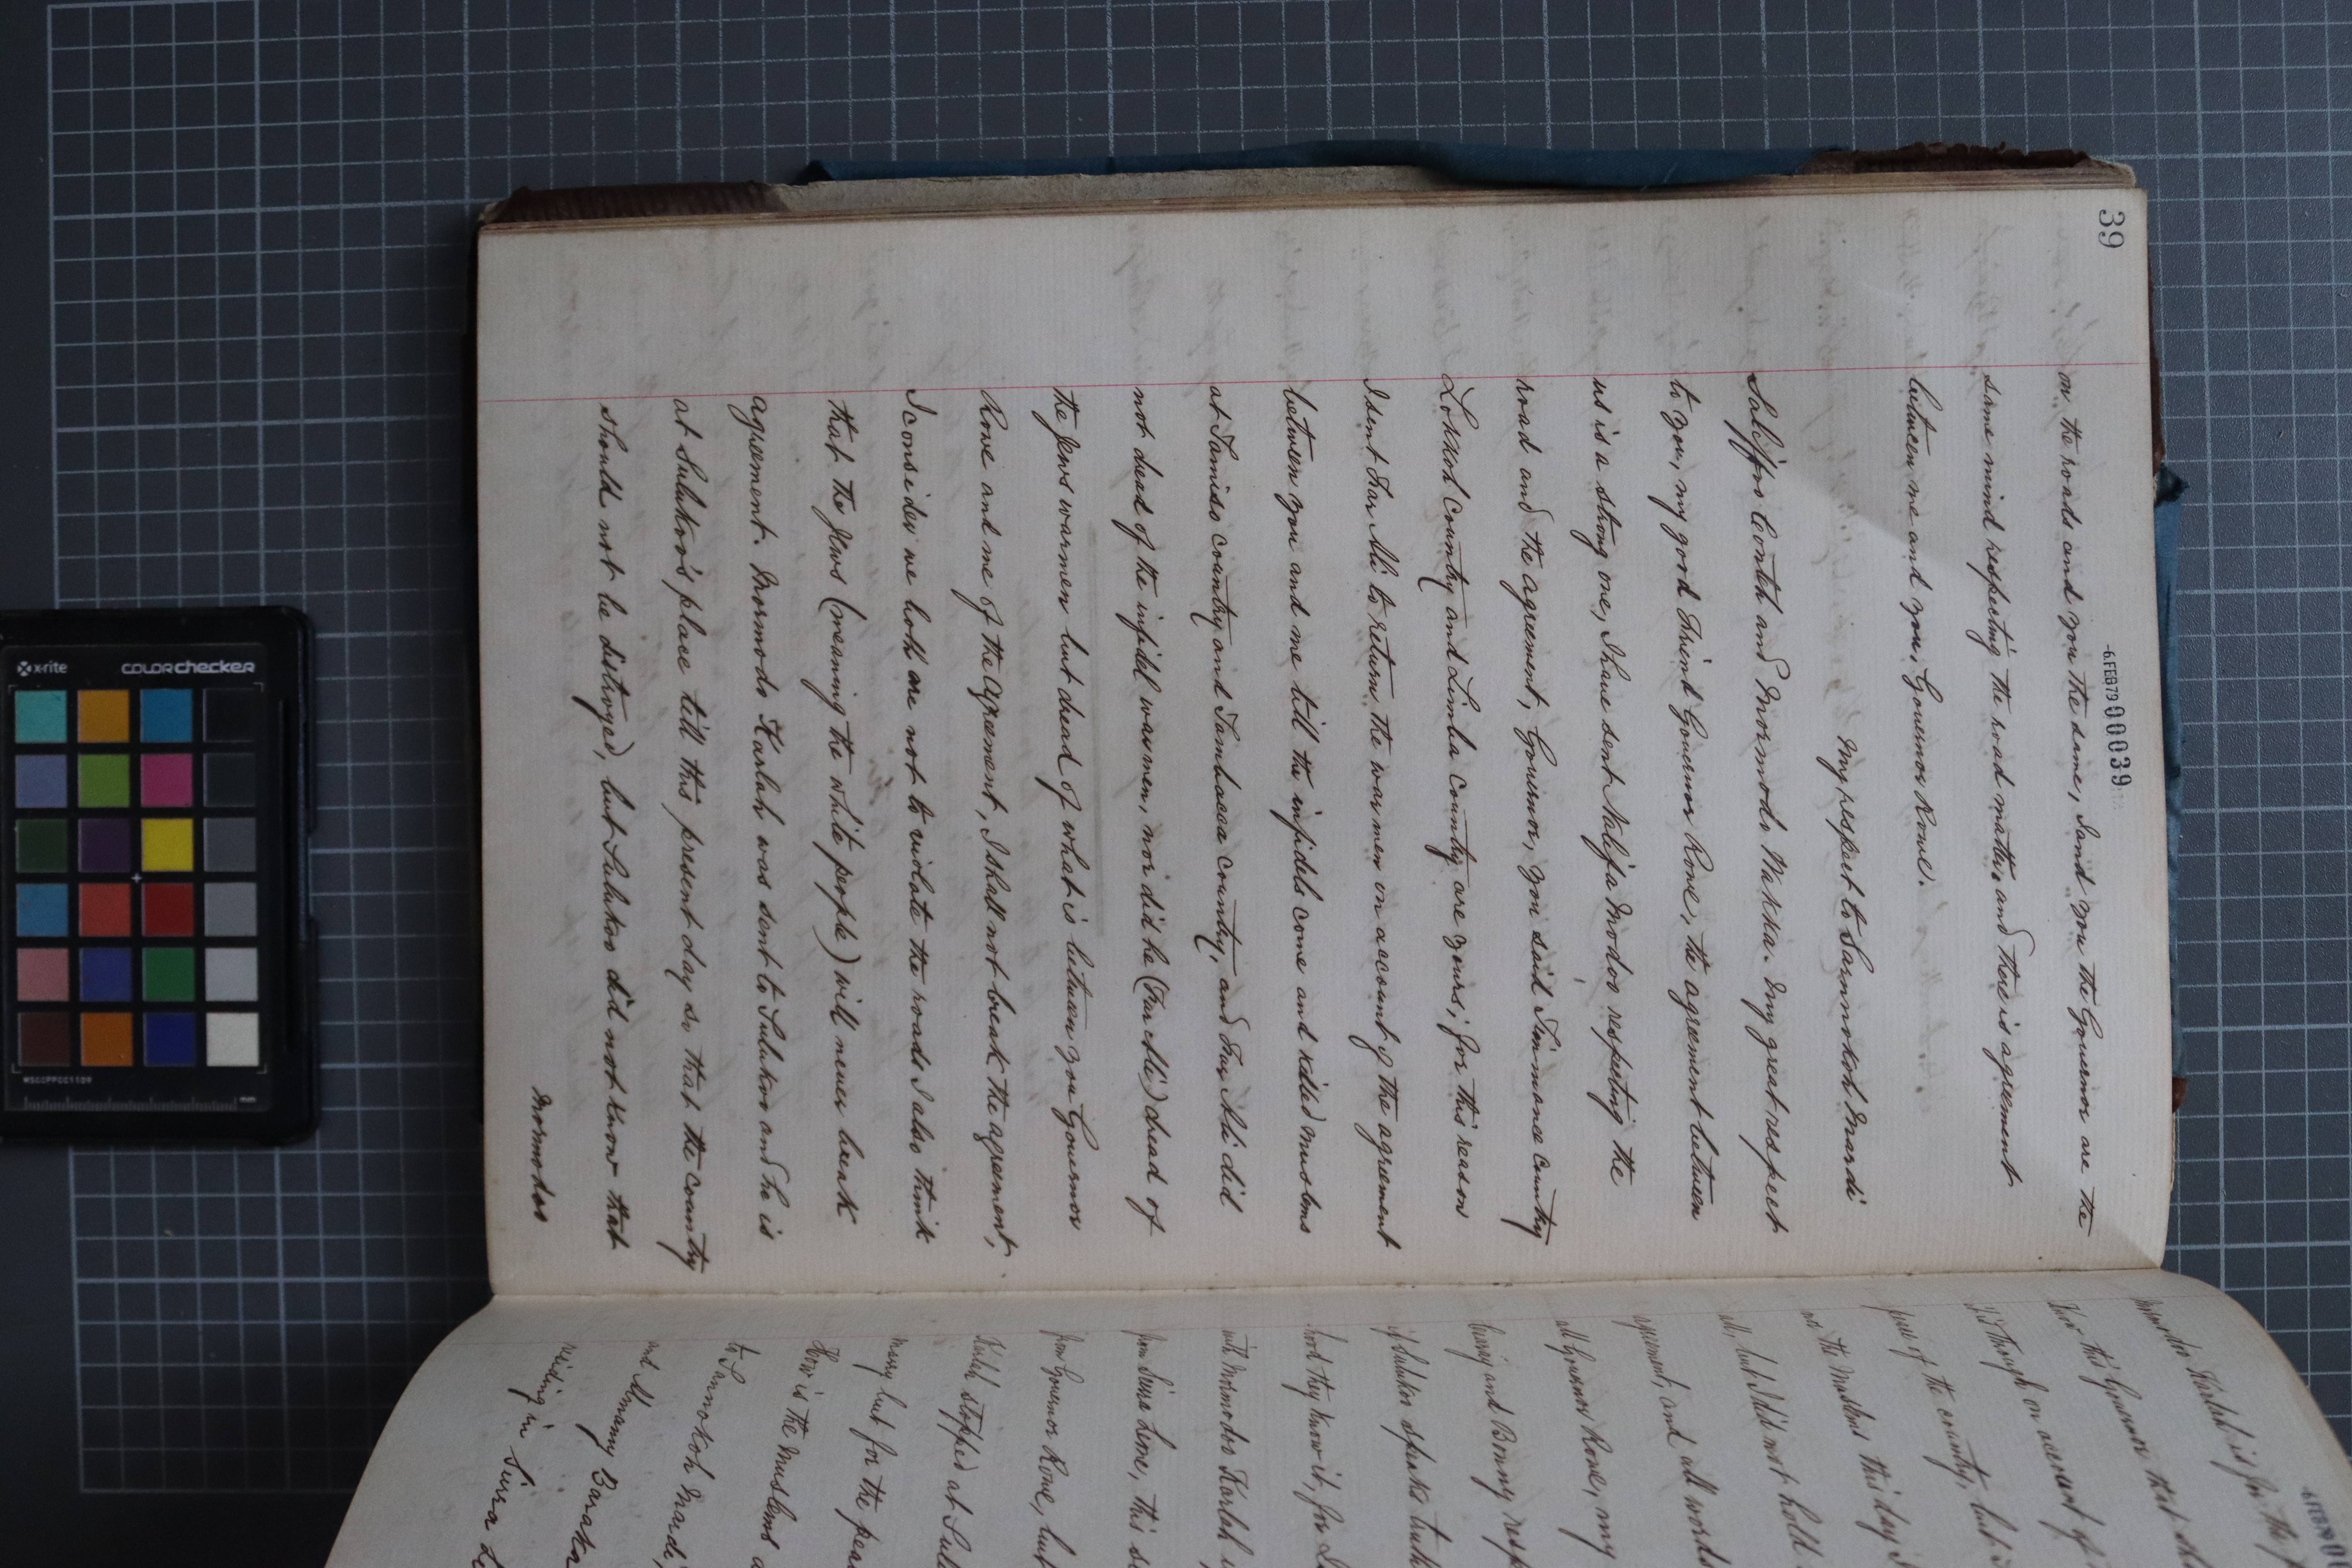 39
-6FEB79 00039
on the roads and you the same, I and you the Governor are the
same mind respecting the road matter, and there is agreement
between me and you, Governor Rowe.
My respect to Sannokoh Maradi
Salifoo Conteh and Mormodo Wakka. My great respect
to you, my good Friend Governor Rowe, the agreement between
us is a strong one, I have sent Nalifa Modoo respecting the
road and the agreement, Governor, you said Timmanee country
Lokkoh Country and Limba country are yours, for this reason
I sent Far Ali to return the war men on account of the agreement
between you and me till the infidels come and killed muslems
at Tamiso country and Tambacca country, and Far Ali did
not dead of the infidel warmen, nor did he (Far Ali) dead of
the Jews warmen but dead of what is between you Governor
Rowe and me of the agreement, I shall not break the agreement,
I consider we both are not to violate the roads I also think
that the Jews (meaning the white people) will never break
agreement. Mormodo Karlah was sent to Sulukoo and he is
at Sulukoo's place till this present day so that the country
should not be distroyed, but Sulukoo did not know that
Mormodoo
Mormodoo Karlah is for the
this Governor that
through on account of
of the country, but
the Muslems this day
all, but did not hold
agreement, and all words
all Governor Rowe, my
and Bonny resp
if Sulukoo speaks truth
they know it, for I
with Mormodoo Karlah
from Sierra Leone, this
from Governor Rowe, but
Karlah stopped at Sulu
many but for the pea
How is the muslems
to Sannokoh Maradi,
and Almamy Baraka
residing in Sierra Le
x-rite colorchecker
MSCCPPCC1109
mm